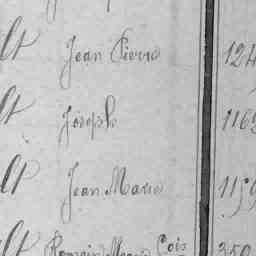 lt Jean Pierre 124
lt Joseph 1162
lt Jean Marie 1159
lt Romain Cois 350